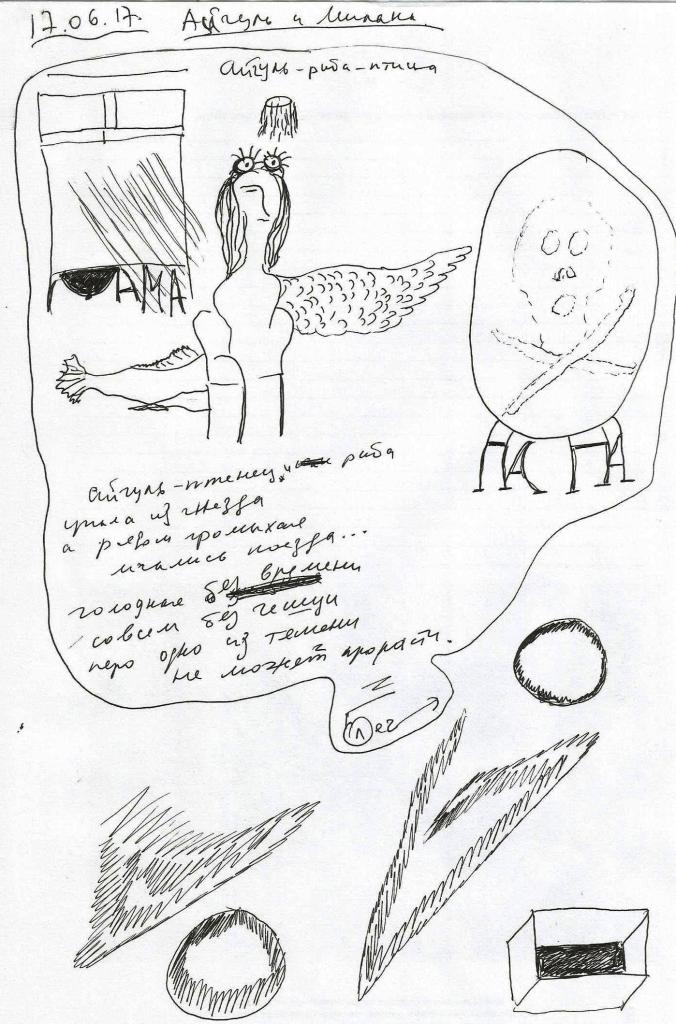 17.06.17. Айгуль и Милана.
Айгуль-рыба-птица
АМА
ПАСТА
Айгуль-птенец, рыба
упала из гнезда
а рядом громыхая
мчались поезда...
голодные без времени
совсем без чешуи
перо одно из темени
не может прорасти.